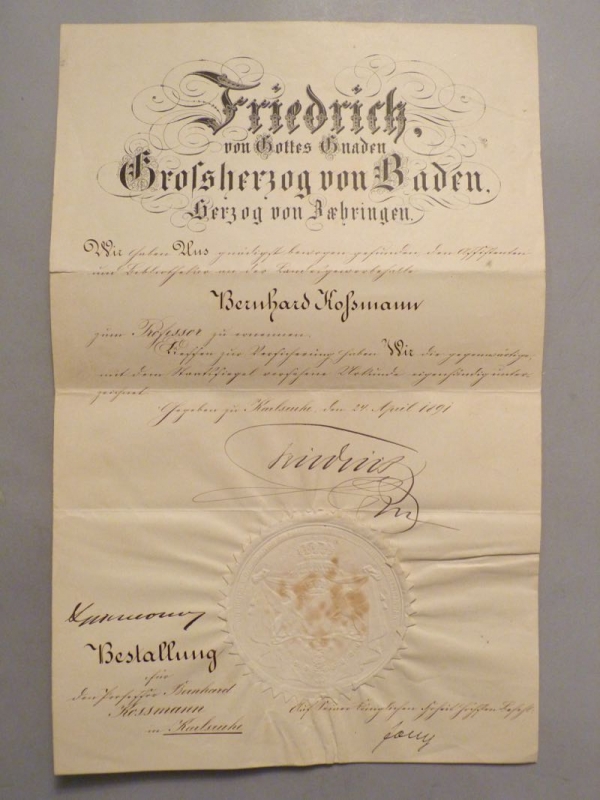 Friedrich,
von Gottes Gnaden
Grossherzog von Baden,
Herzog von Zæhringen.
Wir haben Uns gnädigst bewogen gefunden den Assistenten
und Bibliothekar an der Landesgewerbehalle
Bernhard Koßmann
zum Professor zu ernennen.
Dessen zur Versicherung haben Wir die gegenwärtige
mit dem Staatssiegel versehene Urkunde eigenhändig unter-
zeichnet.
Gegeben zu Karlsruhe, den 24. April 1891
Friedrich
Bestallung
für
den Professor Bernhard
Kossmann
in Karlsruhe
Auf Seiner Königlichen Hoheit höchsten Befehl